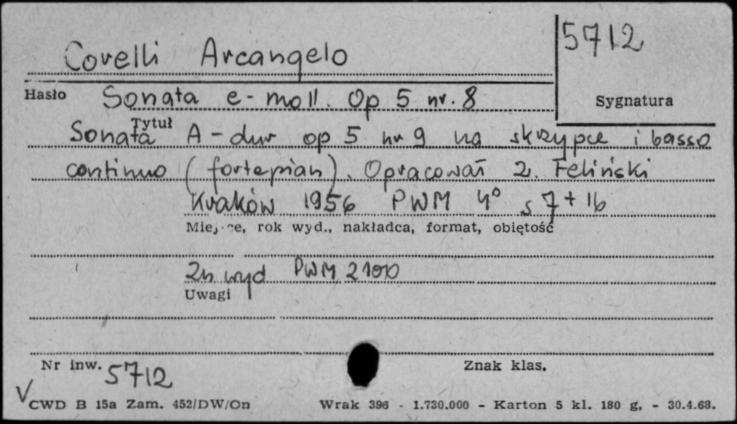 Corelli Arcangelo
5712
Hasło Sonata e-moll. Op 5 nr. 8
Sygnatura
Tytuł
Sonata A-dur op 5 nr 9 na skrzypce i basso
continuo (fortepian). Opracował Z. Feliński
Kraków 1956 PWM 4° s 7 + 16
Miejsce, rok wyd., nakładca, format, obiętość
Zn wyd PWM 2100
Uwagi
Nr inw. 5712
Znak klas.
CWD B 15a Zam. 452/DW/On Wrak 396 - 1.730.000 - Karton 5 kl. 180 g, - 30.4.68.